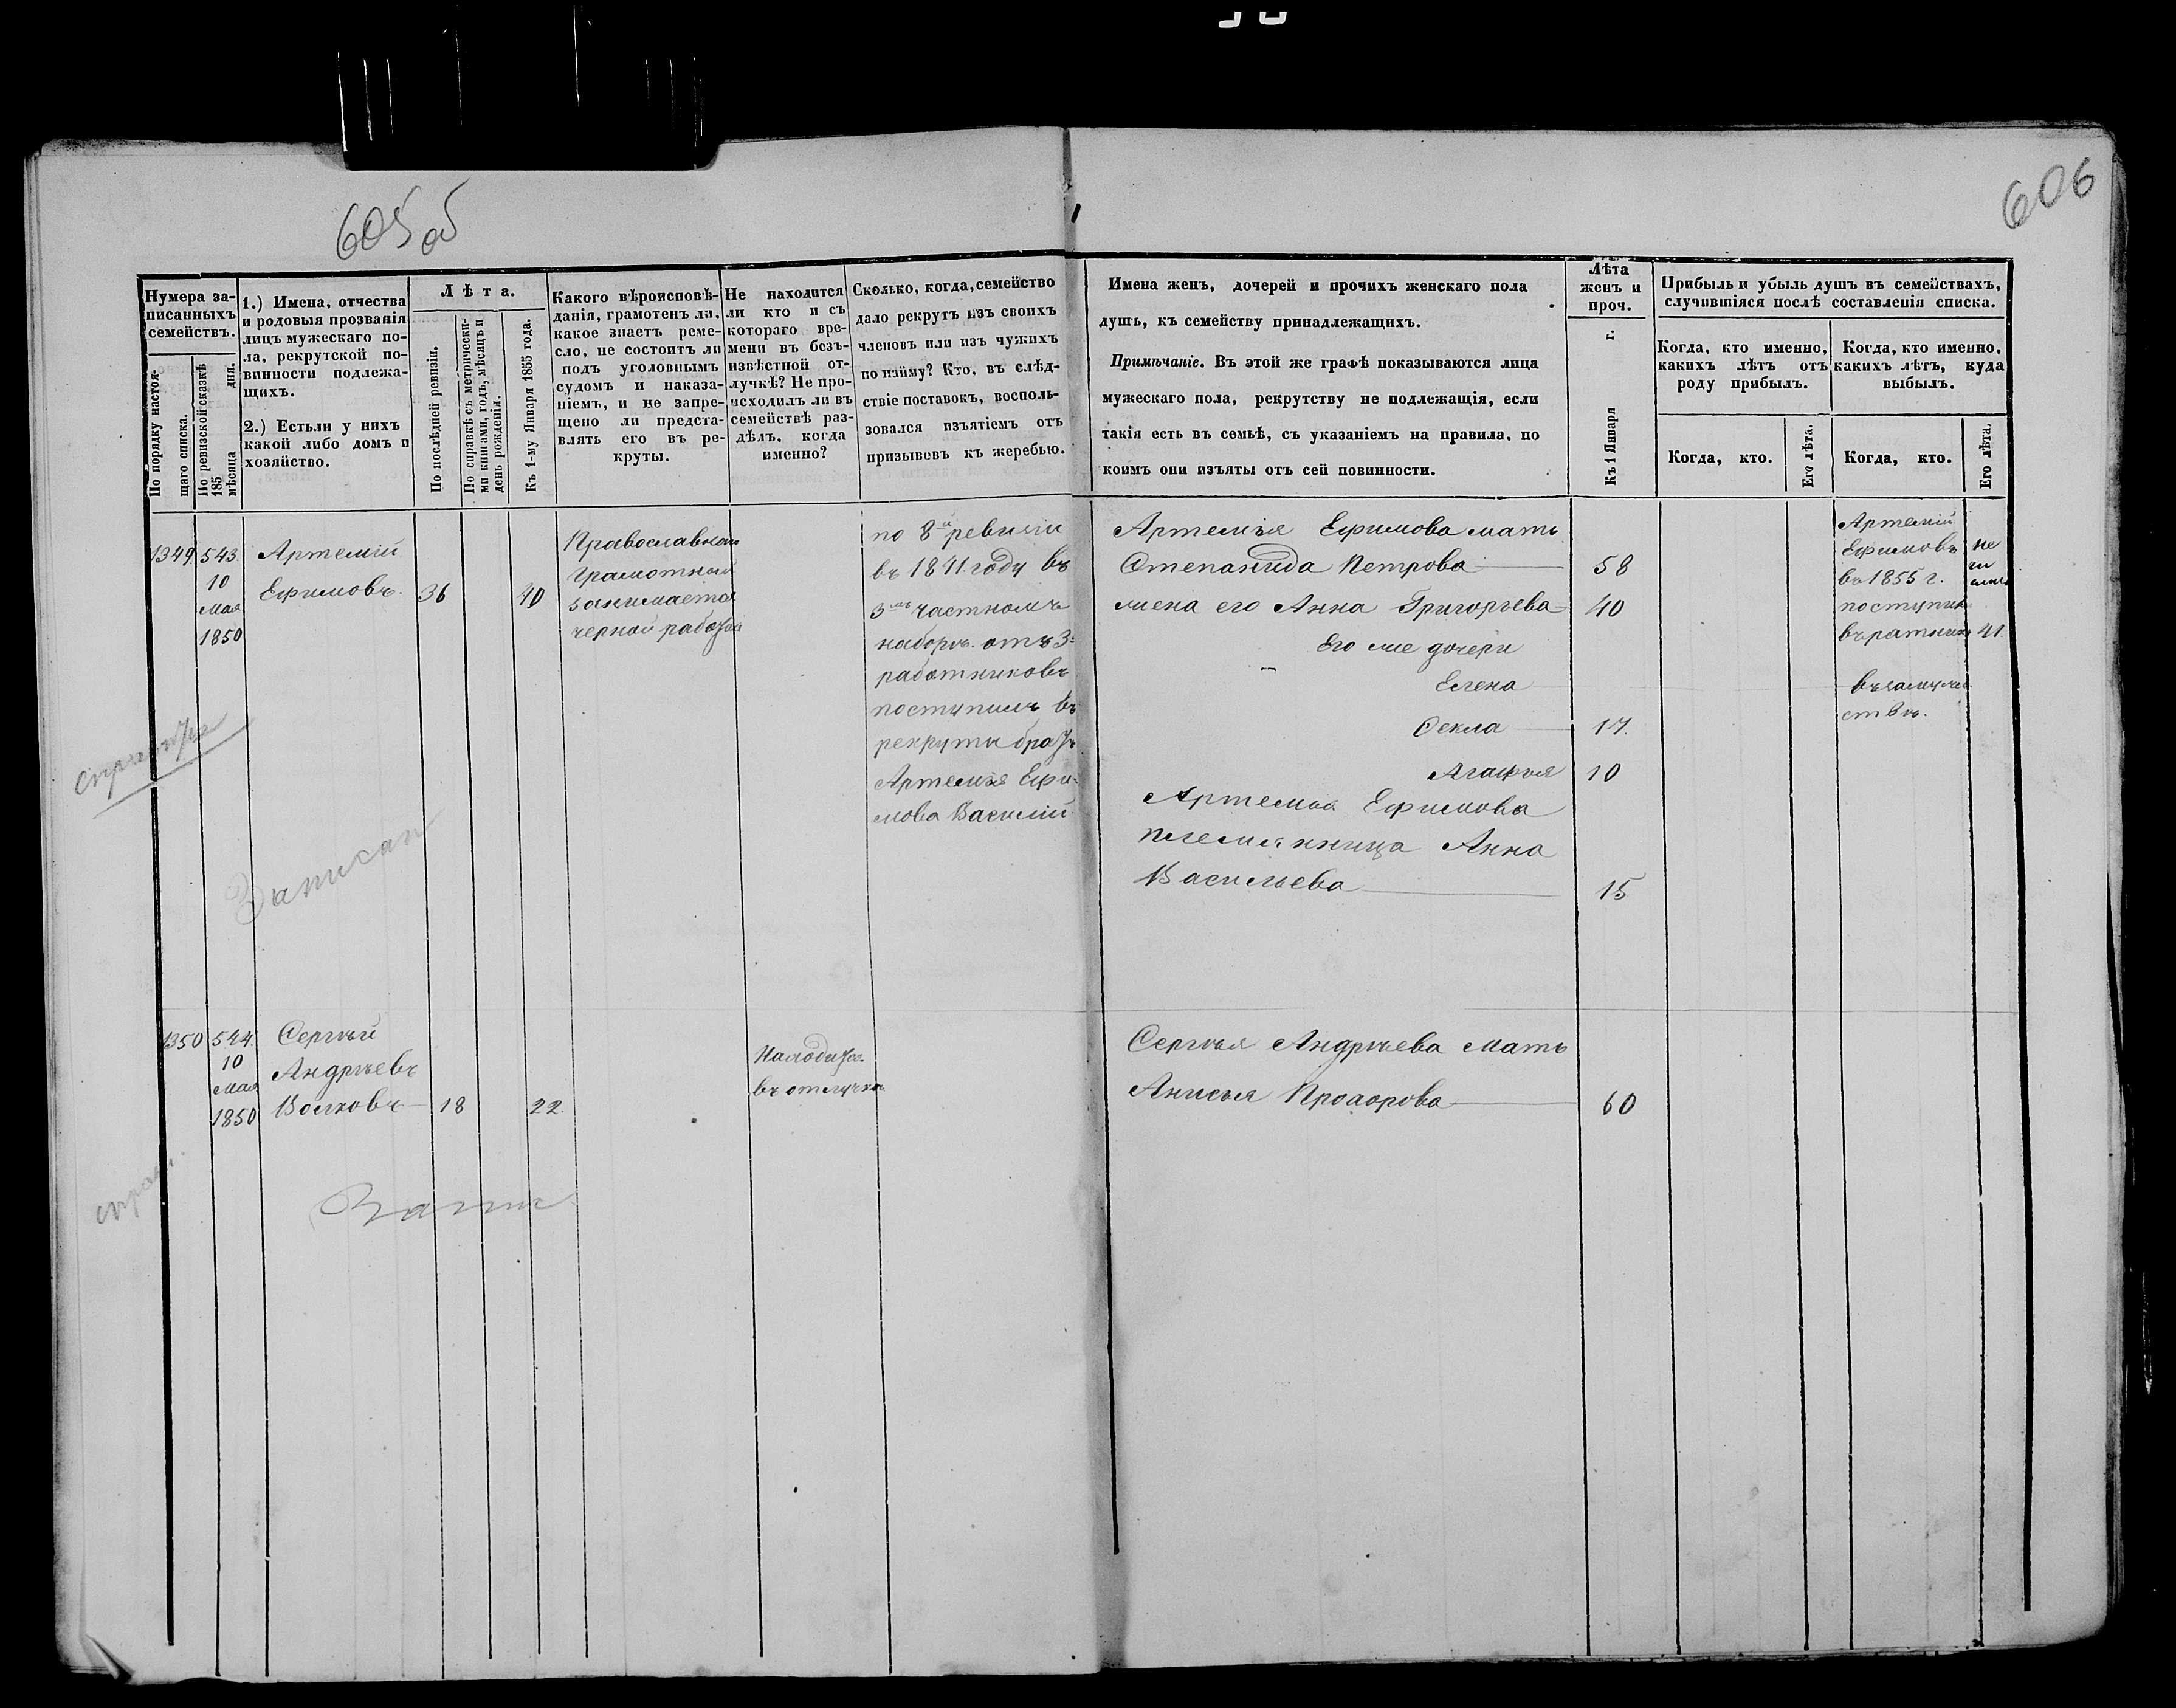 605 об
606
Нумера за-
писанныхъ
семействъ.
По порядку настоя-
щаго списка.
По ревизской сказкѣ
185 дня.
мѣсяца
1.) Имена, отчества
и родовыя прозванія
лицъ мужескаго по-
ла, рекрутской по-
винности подлежа-
щихъ.
2.) Естьли у нихъ
какой либо домъ и
хозяйство.
Лѣта.
По послѣдней ревизіи.
По справкѣ съ метрически-
ми книгами, годъ, мѣсяцъ и
день рожденія.
Къ 1-му Января 1855 года.
Какого вѣроисповѣ-
данія, грамотенъ ли,
какое знаетъ реме-
сло, не состоитъ ли
подъ уголовнымъ
судомъ и наказа-
ніемъ, и не запре-
щено ли предста-
влять его въ ре-
круты.
Не находится
ли кто и съ
котораго вре-
мени въ безъ-
извѣстной от-
лучкѣ? Не про-
исходилъ ли въ
семействѣ раз-
дѣлъ, когда
именно?
Сколько, когда, семейство
дало рекрутъ изъ своихъ
членовъ или изъ чужихъ
по найму? Кто, въ слѣд-
ствіе поставокъ, восполь-
зовался изъятіемъ отъ
призывовъ къ жеребью.
Имена женъ, дочерей и прочихъ женскаго пола
душъ, къ семейству принадлежащихъ.
Примѣчаніе. Въ этой же графѣ показываются лица
мужескаго пола, рекрутству не подлежащія, если
такія есть въ семьѣ, съ указаніемъ на правила, по
коимъ они изъяты отъ сей повинности.
Лѣта
женъ и
проч.
Къ 1 Января г.
Прибыль и убыль душъ въ семействахъ,
случившіяся послѣ составленія списка.
Когда, кто именно,
какихъ лѣтъ отъ
роду прибылъ.
Когда, кто именно,
какихъ лѣтъ, куда
выбылъ.
Когда, кто.
Его лѣта.
Когда, кто.
Его лѣта.
1349
543.
10
Мая
1850
Артемій
Ефимовъ.
36
40
Православной
грамотный
занимается
черной работой
по 8й ревизіи
въ 1841 году въ
3мъ частномъ
наборѣ отъ 3х
работниковъ
поступилъ въ
рекруты братъ
Артемія Ефи-
мова Василій
Артемія Ефимова мать
Степанида Петрова 58
жена его Анна Григорьева 40
Его же дочери
Елена
Фекла 17.
Агафья 10
Артемія Ефимова
племянница Анна
Васильева 15
Артемій
Ефимовъ
въ 1855 г.
поступил
въ ратники 41.
въ замуже
ствѣ.
справка
Записан
1350
544.
10
Мая
1850
Сергѣй
Андрѣевъ
Волковъ
18
22.
Находится
въ отлучкѣ
Сергѣя Андрѣева мать
Анисья Прохорова 60
Запис